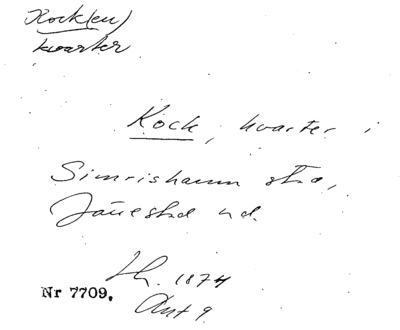 Kock(en)
kvarter
Kock, kvarter i
Simrishamn stad,
Järrestad hd.
Lh. 1874
Nr 7709.
Ant 9